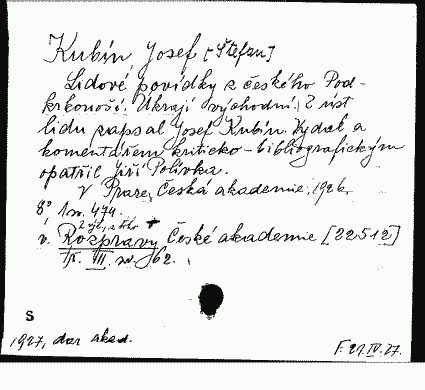 Kubín, Josef [Štefan]
Lidové povídky z českého Pod-
krkonoší. Úkrají východní. Z úst
lidu zapsal Josef Kubín. Vydal a
komentářem kriticko-bibliografickým
opatřil Jiří Polívka.
V Praze, Česká akademie, 1926.
8° 474.
v. Rozpravy České akademie [22512]
Tř. III. 62.
S
1927, dar akad.
F. 21.IV.27.